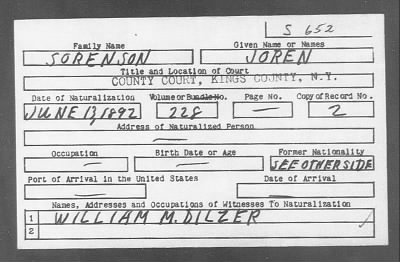 S 652
Family Name Given Name or Names
SORENSON JOREN
Title and Location of Court
COUNTY COURT, KINGS COUNTY, N.Y.
Date of Naturalization Volume or Bundle No. Page No. Copy of Record No.
JUNE 13, 1892 228 — 2
Address of Naturalized Person
—
Occupation Birth Date or Age Former Nationality
— — SEE OTHER SIDE
Port of Arrival in the United States Date of Arrival
— —
Names, Addresses and Occupations of Witnesses To Naturalization
1 WILLIAM M. DILZER
2